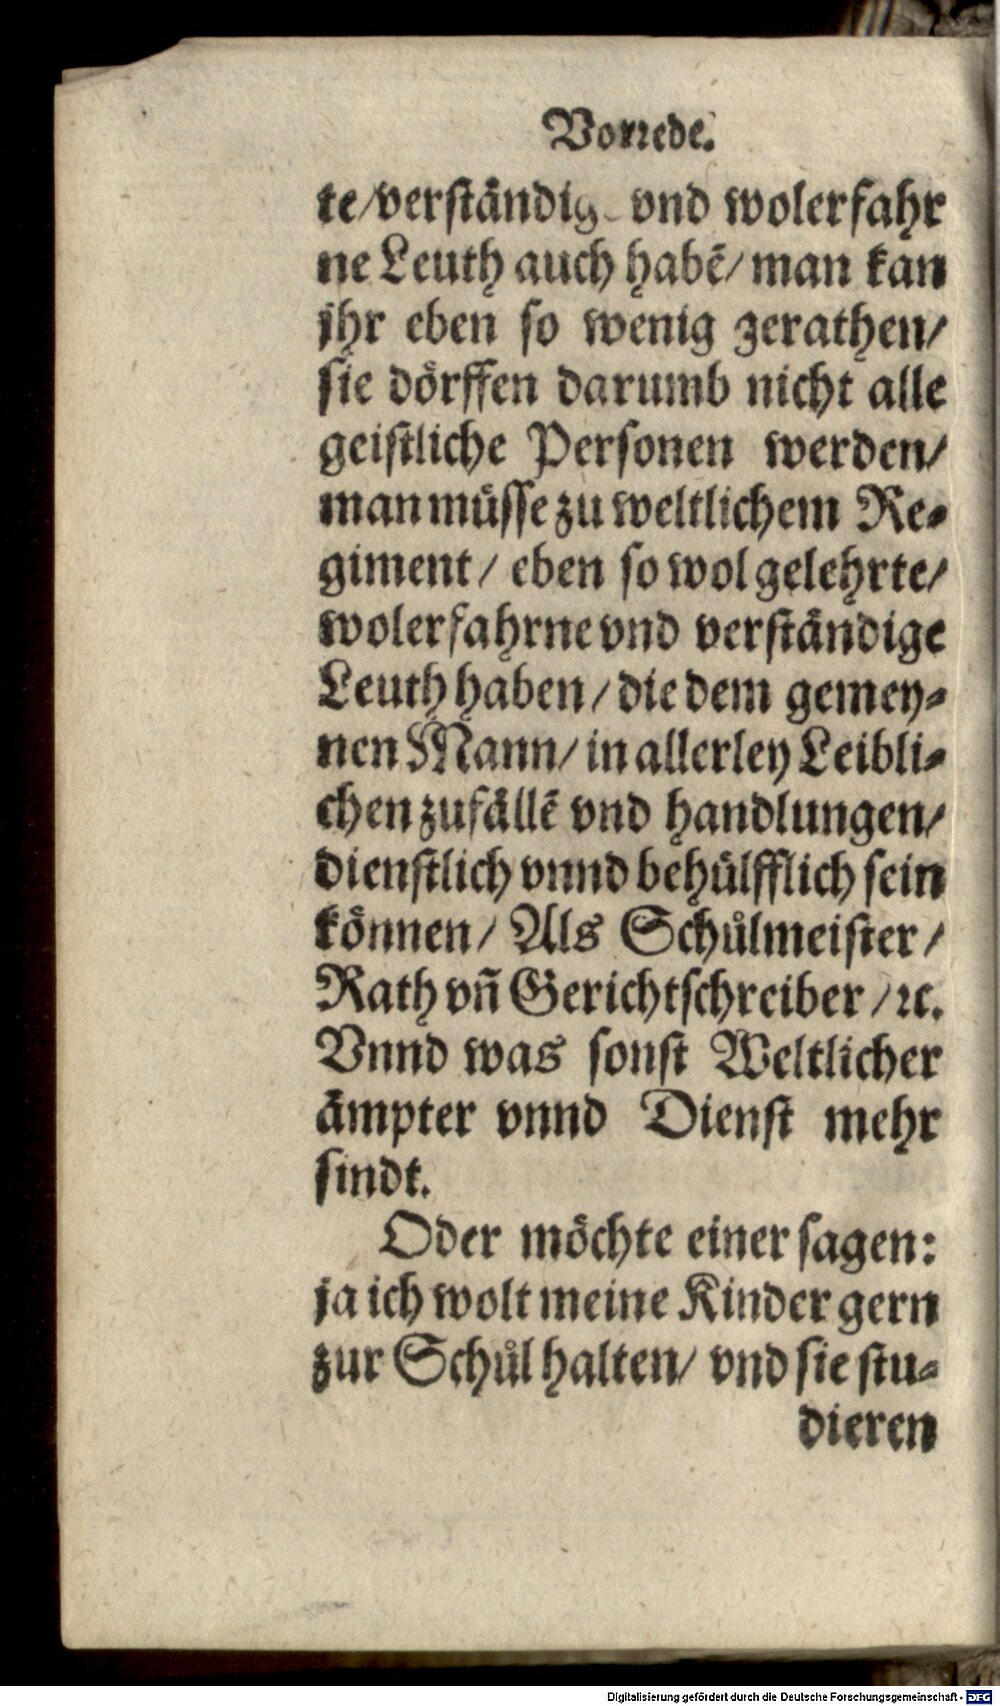 Vorrede.
te/verständig vnd wolerfahr
ne Leuth auch habẽ/ man kan
jhr eben so wenig zerathen/
sie dörffen darumb nicht alle
geistliche Personen werden/
man müsse zu weltlichem Re-
giment / eben so wol gelehrte/
wolerfahrne vnd verständige
Leuth haben / die dem gemey-
nen Mann/ in allerley Leibli-
chen zufällẽ vnd handlungen/
dienstlich vnnd behülfflich sein
können/ Als Schůlmeister /
Rath vñ Gerichtschreiber /ꝛc.
Vnnd was sonst Weltlicher
ämpter vnnd Dienst mehr
sindt.
Oder möchte einer sagen:
ja ich wolt meine Kinder gern
zur Schůl halten/ vnd sie stu-
dieren
Digitalisierung gefördert durch die Deutsche Forschungsgemeinschaft - DFG